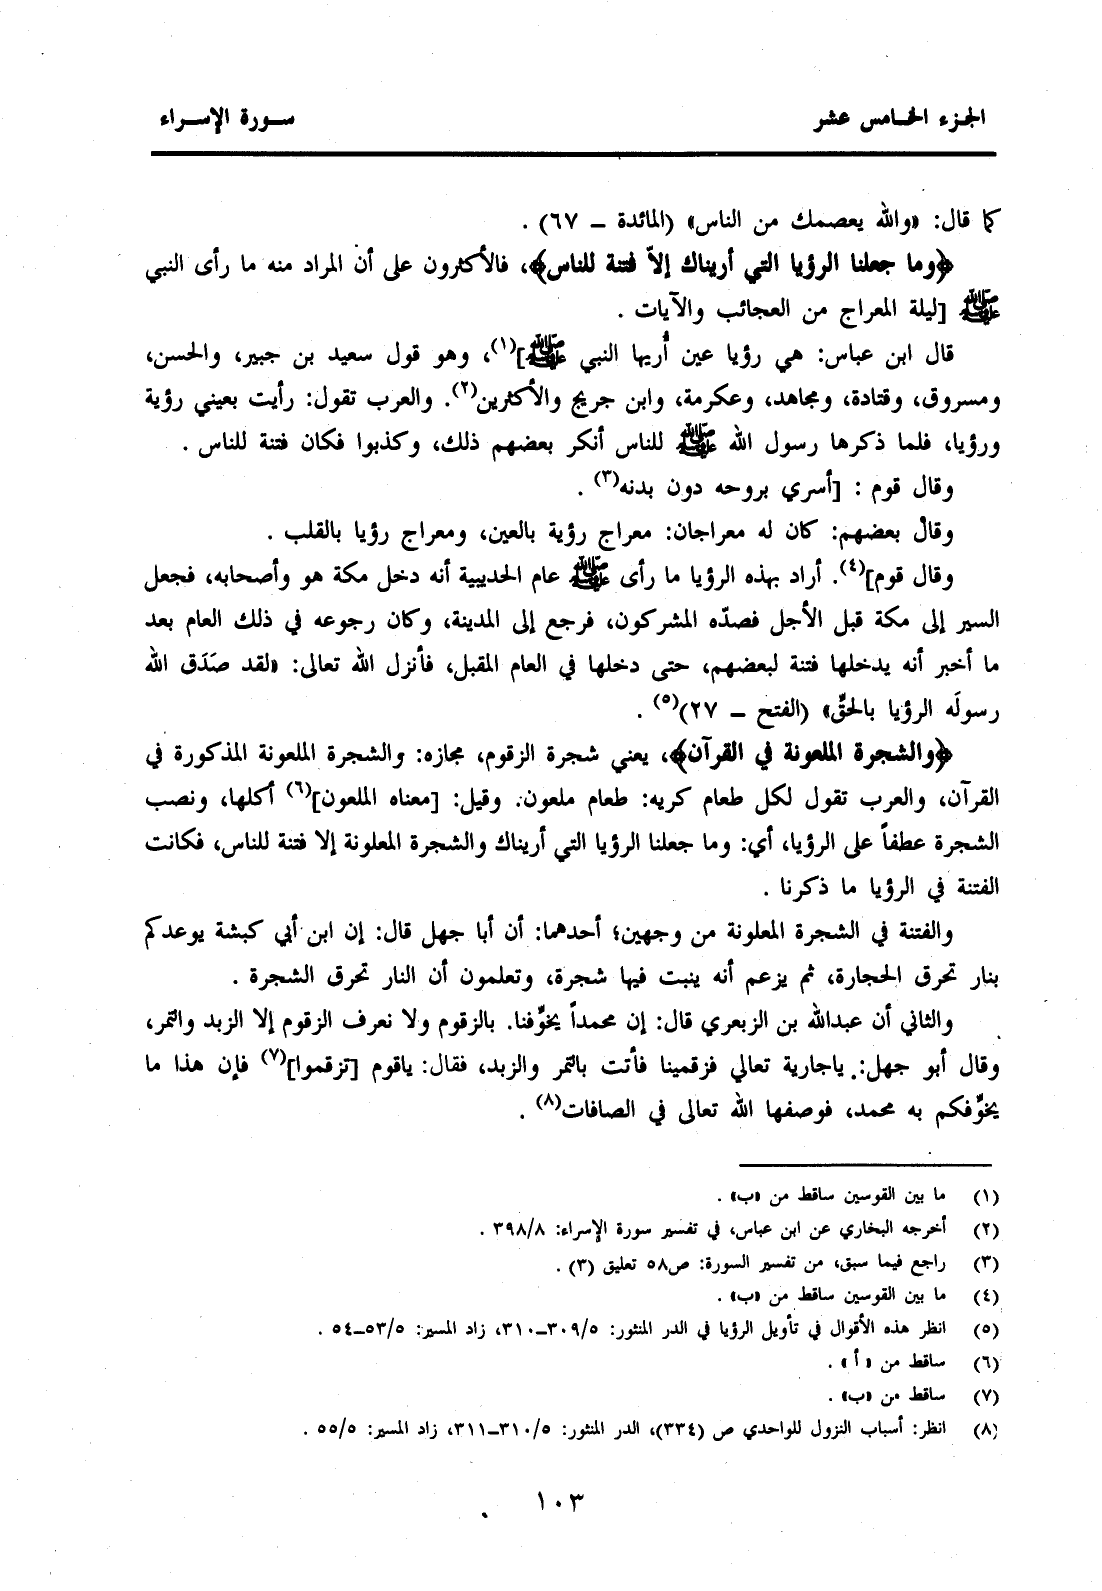 الجزء الخامس عشر
سورة الإسراء
كما قال: «والله يعصمك من الناس» (المائدة – ٦٧) .
﴿وما جعلنا الرؤيا التي أريناك إلاّ فتنة للناس﴾، فالأكثرون على أن المراد منه ما رأى النبي
ﷺ [ليلة المعراج من العجائب والآيات .
قال ابن عباس: هي رؤيا عين أُريها النبي ﷺ](١)، وهو قول سعيد بن جبير، والحسن،
ومسروق، وقتادة، ومجاهد، وعكرمة، وابن جريج والأكثرين(٢). والعرب تقول: رأيت بعيني رؤية
ورؤيا، فلما ذكرها رسول الله ﷺ للناس أنكر بعضهم ذلك، وكذبوا فكان فتنة للناس .
وقال قوم : [أسري بروحه دون بدنه(٣) .
وقال بعضهم: كان له معراجان: معراج رؤية بالعين، ومعراج رؤيا بالقلب .
وقال قوم](٤). أراد بهذه الرؤيا ما رأى ﷺ عام الحديبية أنه دخل مكة هو وأصحابه، فجعل
السير إلى مكة قبل الأجل فصدّه المشركون، فرجع إلى المدينة، وكان رجوعه في ذلك العام بعد
ما أخبر أنه يدخلها فتنة لبعضهم، حتى دخلها في العام المقبل، فأنزل الله تعالى: «لقد صَدَق الله
رسولَه الرؤيا بالحقِّ» (الفتح – ٢٧)(٥) .
﴿والشجرة الملعونة في القرآن﴾، يعني شجرة الزقوم، مجازه: والشجرة الملعونة المذكورة في
القرآن، والعرب تقول لكل طعام كريه: طعام ملعون. وقيل: [معناه الملعون](٦) أكلها، ونصب
الشجرة عطفاً على الرؤيا، أي: وما جعلنا الرؤيا التي أريناك والشجرة المعلونة إلا فتنة للناس، فكانت
الفتنة في الرؤيا ما ذكرنا .
والفتنة في الشجرة المعلونة من وجهين؛ أحدهما: أن أبا جهل قال: إن ابن أبي كبشة يوعدكم
بنار تحرق الحجارة، ثم يزعم أنه ينبت فيها شجرة، وتعلمون أن النار تحرق الشجرة .
والثاني أن عبدالله بن الزبعري قال: إن محمداً يخوِّفنا. بالزقوم ولا نعرف الزقوم إلا الزبد والتمر،
وقال أبو جهل: ياجارية تعالي فزقمينا فأتت بالتمر والزبد، فقال: ياقوم [تزقموا](٧) فإن هذا ما
يخوِّفكم به محمد، فوصفها الله تعالى في الصافات(٨) .
(١) ما بين القوسين ساقط من «ب» .
(٢) أخرجه البخاري عن ابن عباس، في تفسير سورة الإسراء: ٣٩٨/٨ .
(٣) راجع فيما سبق، من تفسير السورة: ص٥٨ تعليق (٣) .
(٤) ما بين القوسين ساقط من «ب» .
(٥) انظر هذه الأقوال في تأويل الرؤيا في الدر المنثور: ٣٠٩/٥–٣١٠، زاد المسير: ٥٣/٥–٥٤ .
(٦) ساقط من « أ » .
(٧) ساقط من «ب» .
(٨) انظر: أسباب النزول للواحدي ص (٣٣٤)، الدر المنثور: ٣١٠/٥–٣١١، زاد المسير: ٥٥/٥ .
١٠٣